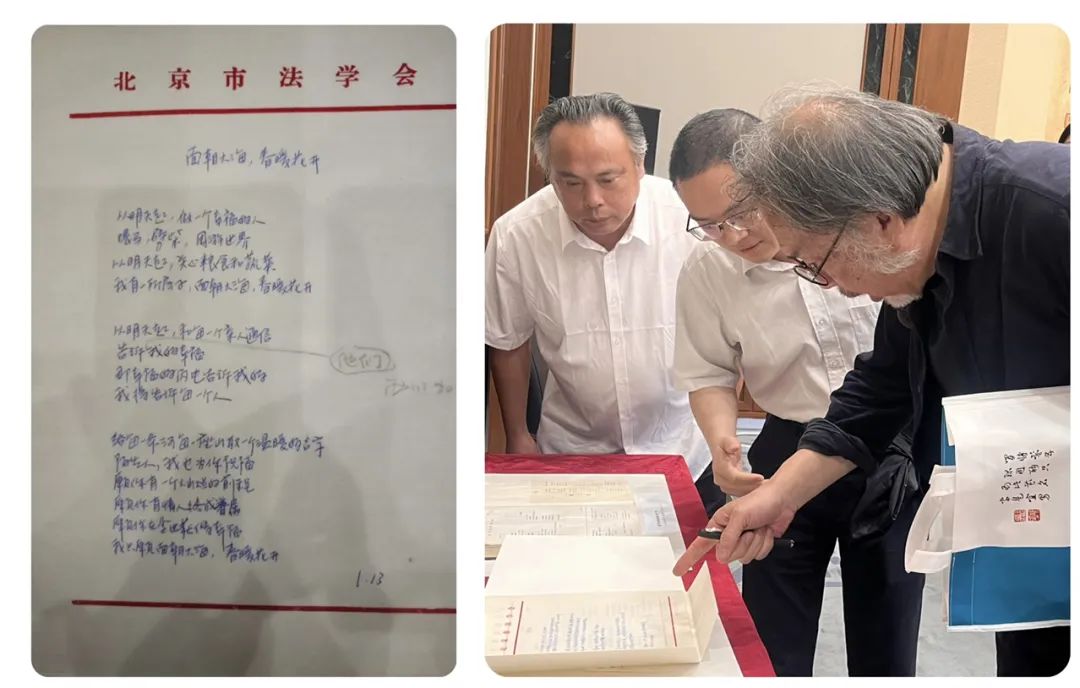 北京市法学会
面朝大海,春暖花开
从明天起,做一个幸福的人
喂马,劈柴,周游世界
从明天起,关心粮食和蔬菜
我有一所房子,面朝大海,春暖花开
从明天起,和每一个亲人通信
告诉我的幸福
他们
那幸福的闪电告诉我的
我将告诉每一个人
给每一条河每一座山取一个温暖的名字
陌生人,我也为你祝福
愿你有一个灿烂的前程
愿你有情人终成眷属
愿你在尘世获得幸福
我只愿面朝大海,春暖花开
1.13
北京市法学会